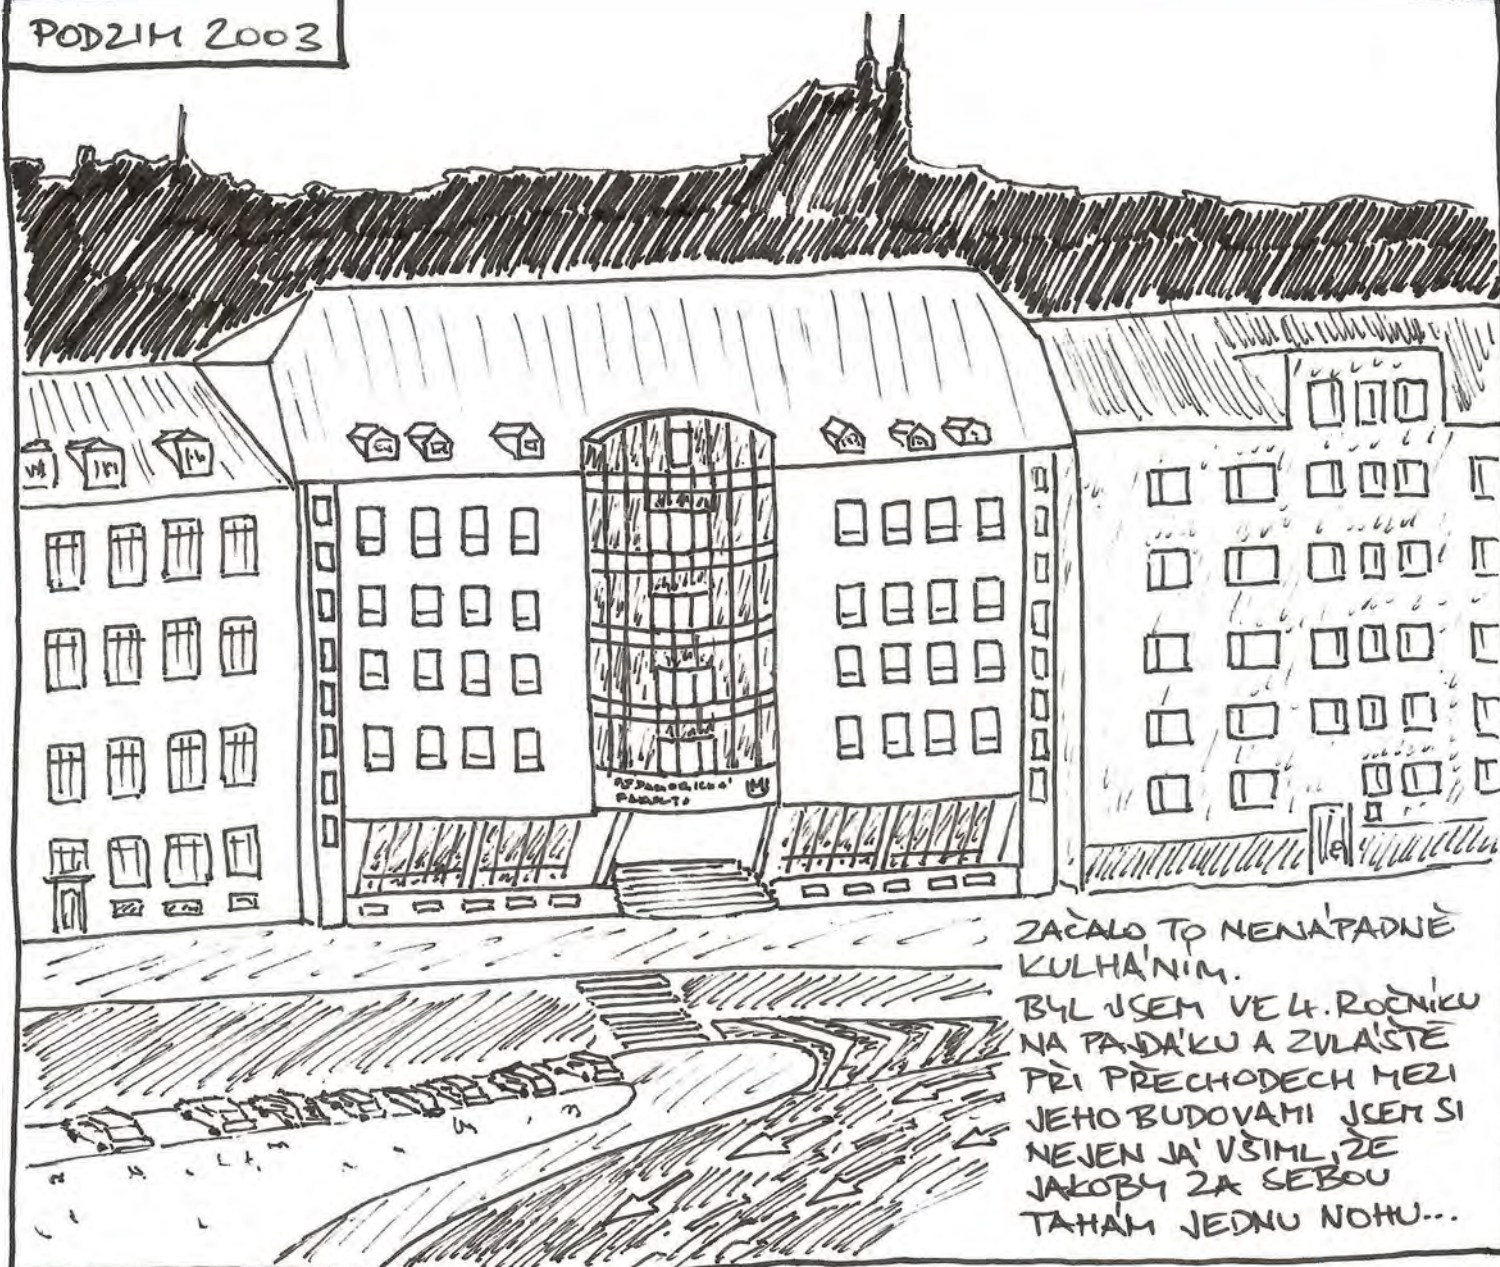 PODZIM 2003
PEDAGOGICKÁ
FAKULTA
ZAČALO TO NENÁPADNĚ
KULHÁNÍM.
BYL JSEM VE 4. ROČNÍKU
NA PAJDÁKU A ZVLÁŠTĚ
PŘI PŘECHODECH MEZI
JEHO BUDOVAMI JSEM SI
NEJEN JÁ VŠIML, ŽE
JAKOBY ZA SEBOU
TAHÁM JEDNU NOHU...